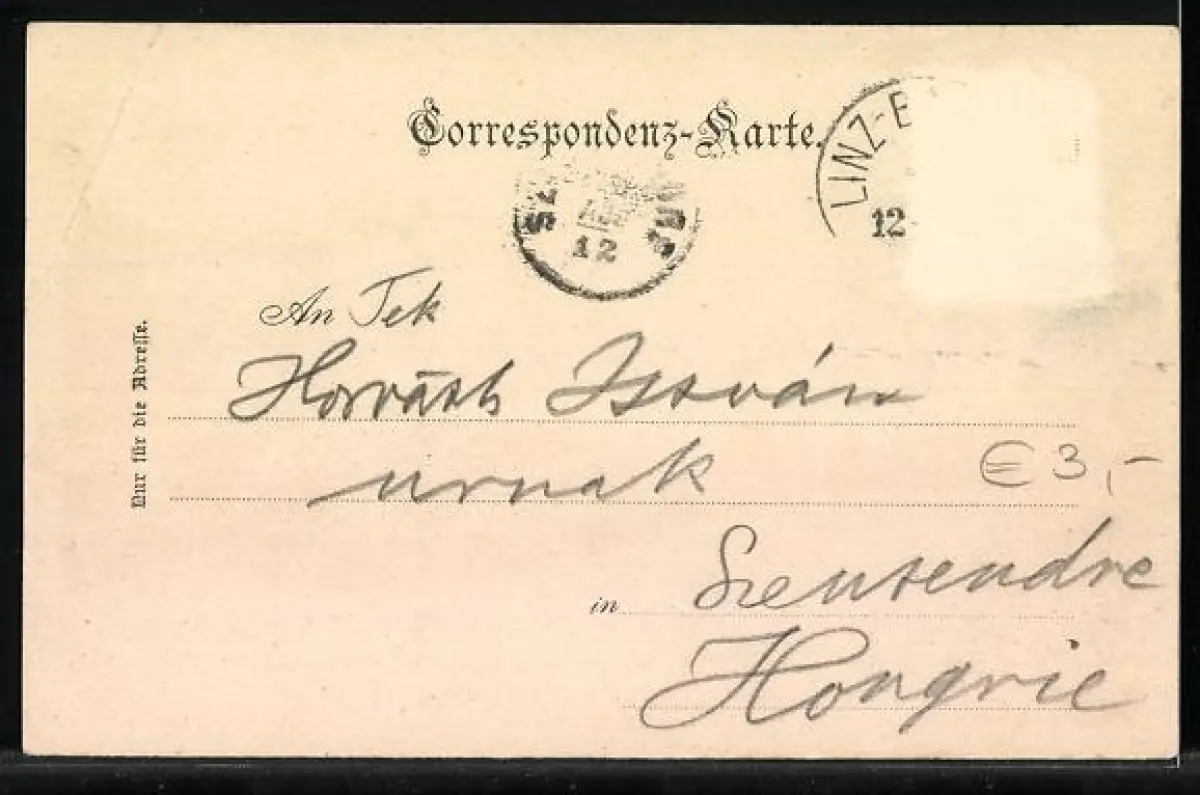 Correspondenz-Karte.
LINZ-B
12
12
An Tek
Horváth István
urnak
€ 3,-
in Szentendre
Hongrie
Nur für die Adresse.